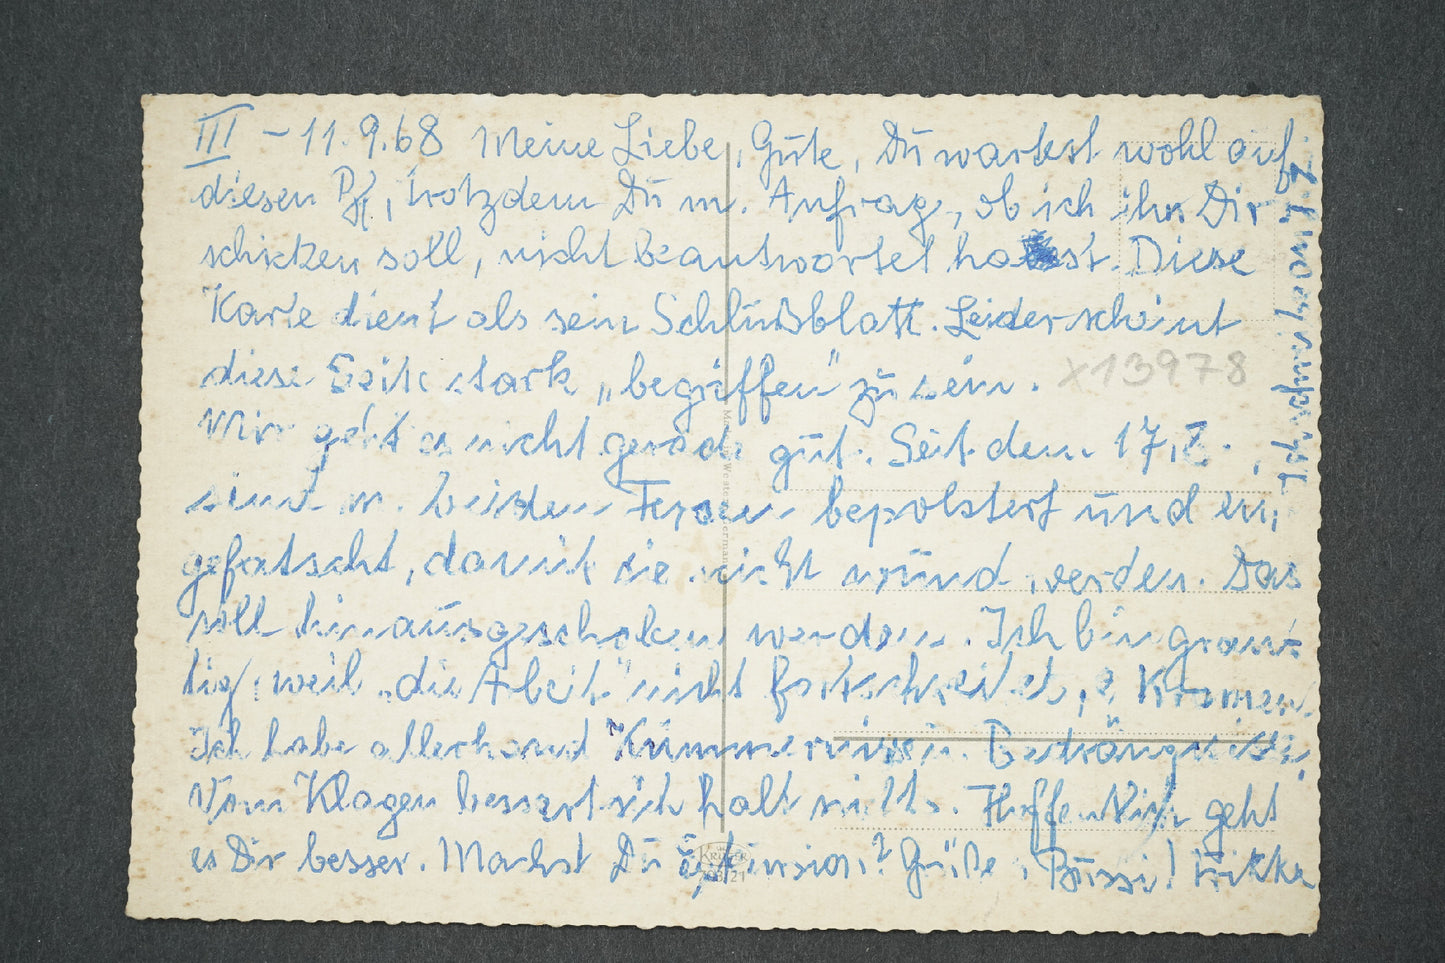 III - 11.9.68 Meine Liebe, Gute, Du wartest wohl auf
diesen Bf, trotzdem Du m. Anfrag, ob ich ihn Dir
schicken soll, nicht beantwortet hast. Diese
Karte dient als sein Schlußblatt. Leider scheint
diese Seite stark „begriffen" zu sein.
x13978
Mir geht es nicht gerade gut. Seit dem 17.8.
sind m. beiden Fersen bepolstert und ein,
gefatscht, damit sie nicht wund werden. Das
soll hinausgeschoben werden. Ich bin gran-
tig, weil „die Arbeit" nicht fortschreitet,
Ich habe allerhand Kümmernisse
Vom Klagen bessert sich halt nichts. Hoffentlich geht
es Dir besser. Machst Du Exkursion? Grüße, Bussi!
KRÜGER
Ich schmiere